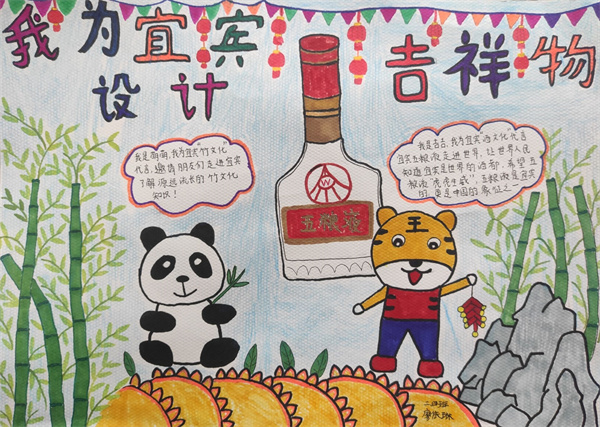 我为宜宾
设计
吉祥物
我是萌萌,我为宜宾“竹文化”
代言,邀请朋友们走进宜宾
了解源远流长的竹文化
知识!
我是吉吉,我为宜宾“酒文化”代言
宜宾五粮液走进世界,让世界人民
知道宜宾是世界的酒都,希望五
粮液“虎虎生威”五粮液是宜宾
的,更是中国的象征之一
五粮液
王
二年级